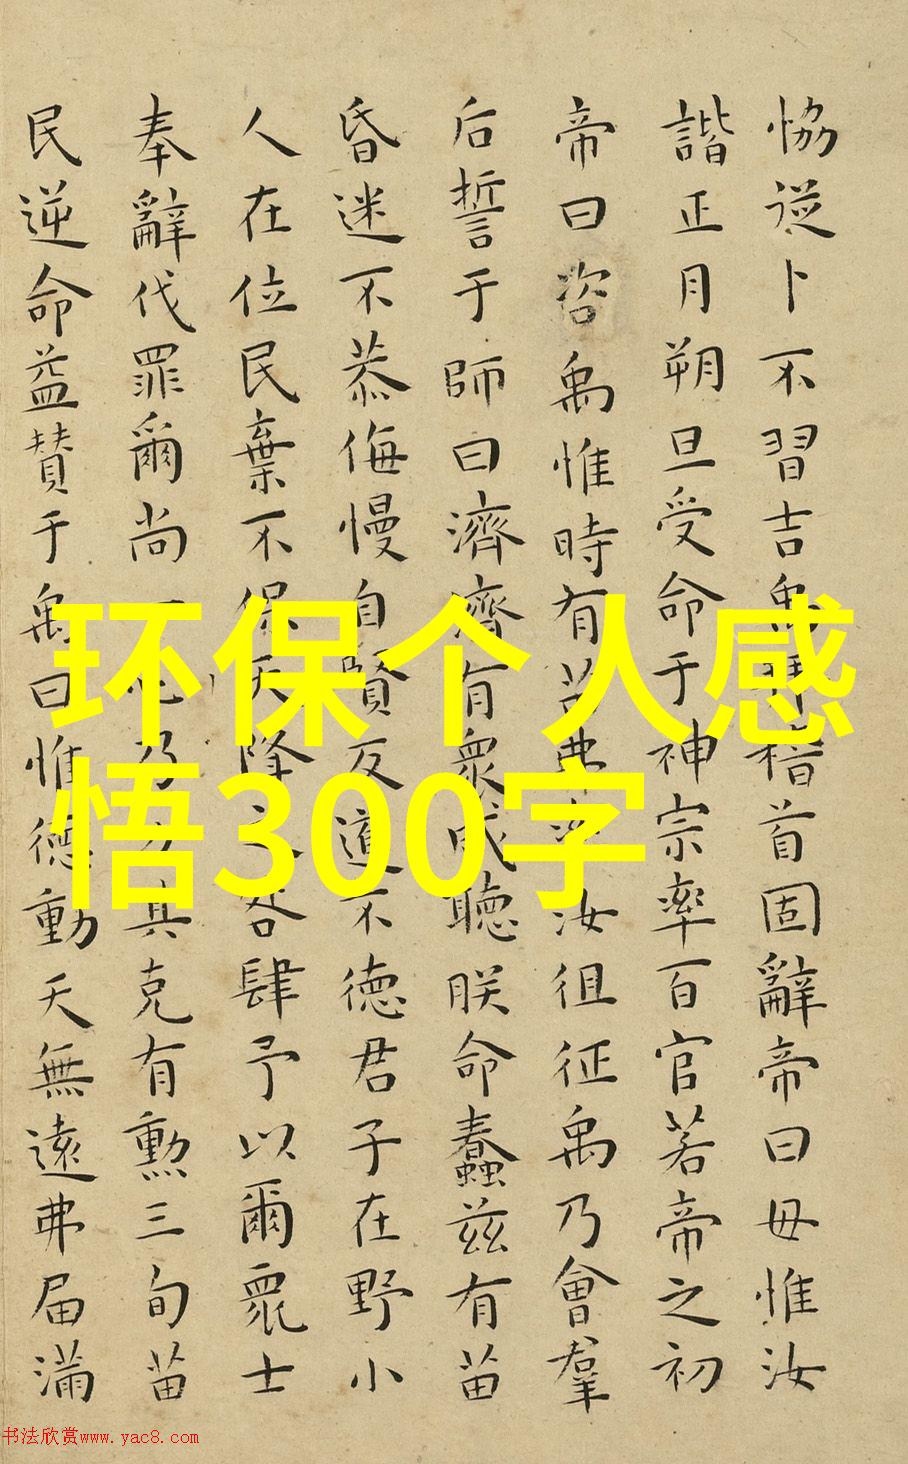 恊從卜不習吉禹拜稽首固辭帝曰毋惟汝
諧正月朔旦受命于神宗率百官若帝之初
帝曰咨禹惟時有苗弗率汝徂征禹乃會羣
后誓于師曰濟濟有衆咸聽朕命蠢茲有苗
昏迷不恭侮慢自賢反道不徳君子在野小
人在位民棄不保天降之咎肆予以爾衆士
奉辭伐罪爾尚一心乃力其克有勲三旬苗
民逆命益賛于禹曰惟德動天無遠弗届滿
环保个人感
悟300字
书法欣赏www.yac8.com